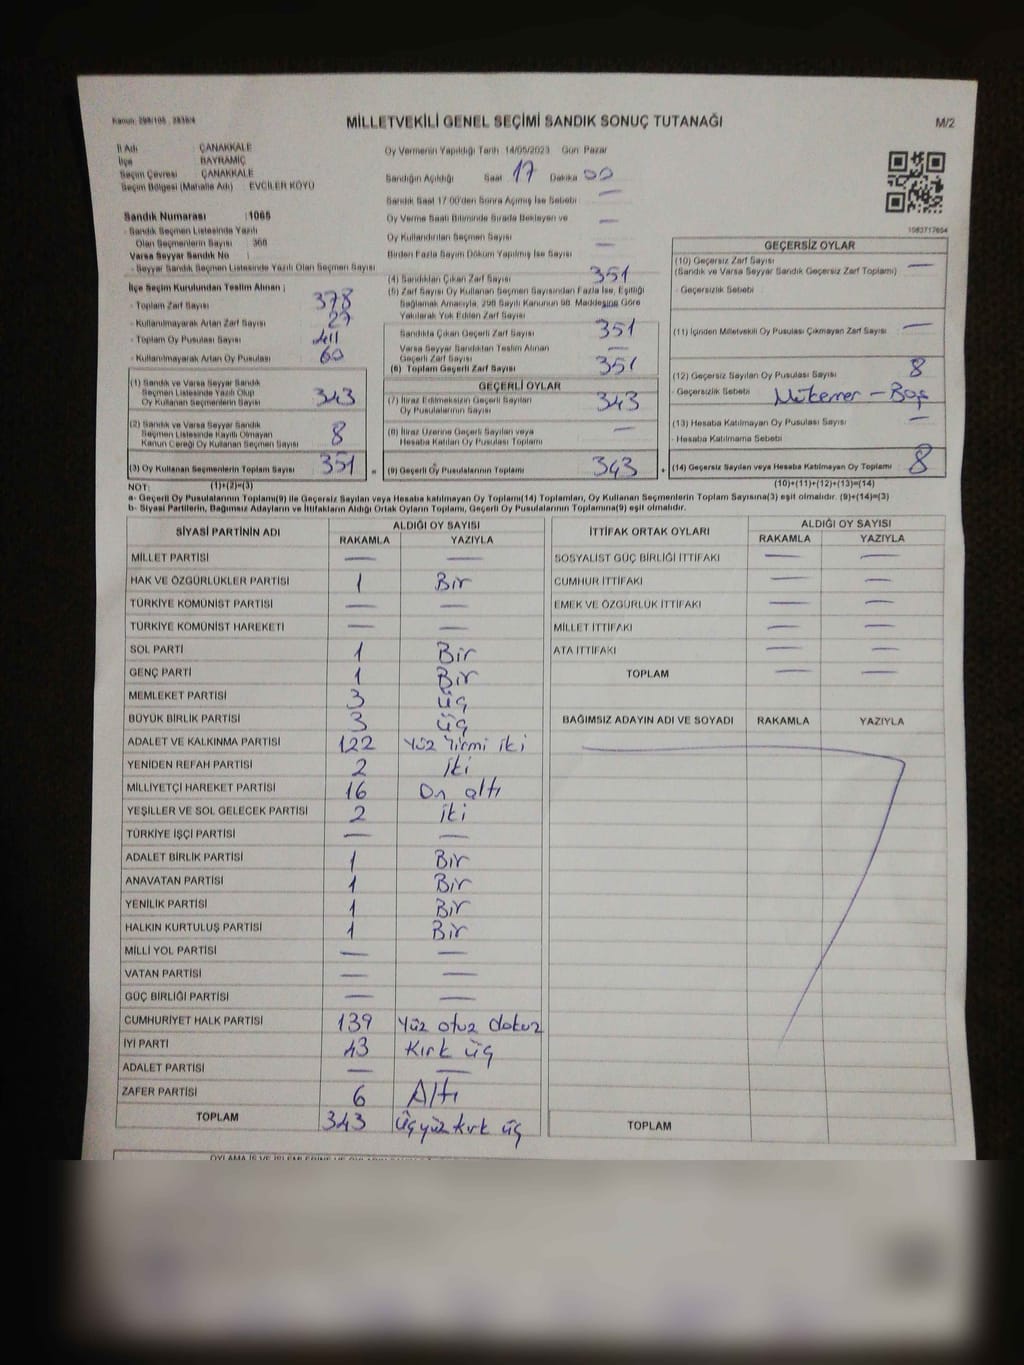 Kanun: 298/105 - 2839/4
MİLLETVEKİLİ GENEL SEÇİMİ SANDIK SONUÇ TUTANAĞI
M/2
İl Adı : ÇANAKKALE
İlçe : BAYRAMİÇ
Seçim Çevresi : ÇANAKKALE
Seçim Bölgesi (Mahalle Adı) : EVCİLER KÖYÜ
Sandık Numarası : 1065
- Sandık Seçmen Listesinde Yazılı
Olan Seçmenlerin Sayısı : 366
Varsa Seyyar Sandık No :
- Seyyar Sandık Seçmen Listesinde Yazılı Olan Seçmen Sayısı
İlçe Seçim Kurulundan Teslim Alınan ;
- Toplam Zarf Sayısı 378
- Kullanılmayarak Artan Zarf Sayısı 27
- Toplam Oy Pusulası Sayısı 411
- Kullanılmayarak Artan Oy Pusulası 60
(1) Sandık ve Varsa Seyyar Sandık
Seçmen Listesinde Yazılı Olup
Oy Kullanan Seçmenlerin Sayısı 343
(2) Sandık ve Varsa Seyyar Sandık
Seçmen Listesinde Kayıtlı Olmayan
Kanun Gereği Oy Kullanan Seçmen Sayısı 8
(3) Oy Kullanan Seçmenlerin Toplam Sayısı 351 =
Oy Vermenin Yapıldığı Tarih 14/05/2023 Gün Pazar
Sandığın Açıldığı Saat 17 Dakika 00
Sandık Saat 17:00'den Sonra Açılmış İse Sebebi —
Oy Verme Saati Bitiminde Sırada Bekleyen ve —
Oy Kullandırılan Seçmen Sayısı —
Birden Fazla Sayım Döküm Yapılmış İse Sayısı
(4) Sandıktan Çıkan Zarf Sayısı 351
(5) Zarf Sayısı Oy Kullanan Seçmen Sayısından Fazla İse, Eşitliği
Sağlamak Amacıyla, 298 Sayılı Kanunun 98. Maddesine Göre
Yakılarak Yok Edilen Zarf Sayısı
Sandıkta Çıkan Geçerli Zarf Sayısı 351
Varsa Seyyar Sandıktan Teslim Alınan
Geçerli Zarf Sayısı —
(6) Toplam Geçerli Zarf Sayısı 351
GEÇERLİ OYLAR
(7) İtiraz Edilmeksizin Geçerli Sayılan
Oy Pusulalarının Sayısı 343
(8) İtiraz Üzerine Geçerli Sayılan veya
Hesaba Katılan Oy Pusulası Toplamı —
(9) Geçerli Oy Pusulalarının Toplamı 343 +
1083717654
GEÇERSİZ OYLAR
(10) Geçersiz Zarf Sayısı
(Sandık ve Varsa Seyyar Sandık Geçersiz Zarf Toplamı) —
- Geçersizlik Sebebi
(11) İçinden Milletvekili Oy Pusulası Çıkmayan Zarf Sayısı —
(12) Geçersiz Sayılan Oy Pusulası Sayısı 8
- Geçersizlik Sebebi Mükerrer - Boş
(13) Hesaba Katılmayan Oy Pusulası Sayısı —
- Hesaba Katılmama Sebebi
(14) Geçersiz Sayılan veya Hesaba Katılmayan Oy Toplamı 8
NOT: (1)+(2)=(3) (10)+(11)+(12)+(13)=(14)
a- Geçerli Oy Pusulalarının Toplamı(9) ile Geçersiz Sayılan veya Hesaba katılmayan Oy Toplamı(14) Toplamları, Oy Kullanan Seçmenlerin Toplam Sayısına(3) eşit olmalıdır. (9)+(14)=(3)
b- Siyasi Partilerin, Bağımsız Adayların ve İttifakların Aldığı Ortak Oyların Toplamı, Geçerli Oy Pusulalarının Toplamına(9) eşit olmalıdır.
SİYASİ PARTİNİN ADI ALDIĞI OY SAYISI
RAKAMLA YAZIYLA
MİLLET PARTİSİ — —
HAK VE ÖZGÜRLÜKLER PARTİSİ 1 Bir
TÜRKİYE KOMÜNİST PARTİSİ — —
TÜRKİYE KOMÜNİST HAREKETİ — —
SOL PARTİ 1 Bir
GENÇ PARTİ 1 Bir
MEMLEKET PARTİSİ 3 üç
BÜYÜK BİRLİK PARTİSİ 3 üç
ADALET VE KALKINMA PARTİSİ 122 Yüz Yirmi iki
YENİDEN REFAH PARTİSİ 2 iki
MİLLİYETÇİ HAREKET PARTİSİ 16 On altı
YEŞİLLER VE SOL GELECEK PARTİSİ 2 iki
TÜRKİYE İŞÇİ PARTİSİ — —
ADALET BİRLİK PARTİSİ 1 Bir
ANAVATAN PARTİSİ 1 Bir
YENİLİK PARTİSİ 1 Bir
HALKIN KURTULUŞ PARTİSİ 1 Bir
MİLLİ YOL PARTİSİ — —
VATAN PARTİSİ — —
GÜÇ BİRLİĞİ PARTİSİ — —
CUMHURİYET HALK PARTİSİ 139 Yüz otuz dokuz
İYİ PARTİ 43 Kırk üç
ADALET PARTİSİ — —
ZAFER PARTİSİ 6 Altı
TOPLAM 343 Üçyüz kırk üç
İTTİFAK ORTAK OYLARI ALDIĞI OY SAYISI
RAKAMLA YAZIYLA
SOSYALİST GÜÇ BİRLİĞİ İTTİFAKI — —
CUMHUR İTTİFAKI — —
EMEK VE ÖZGÜRLÜK İTTİFAKI — —
MİLLET İTTİFAKI — —
ATA İTTİFAKI — —
TOPLAM — —
BAĞIMSIZ ADAYIN ADI VE SOYADI RAKAMLA YAZIYLA
TOPLAM